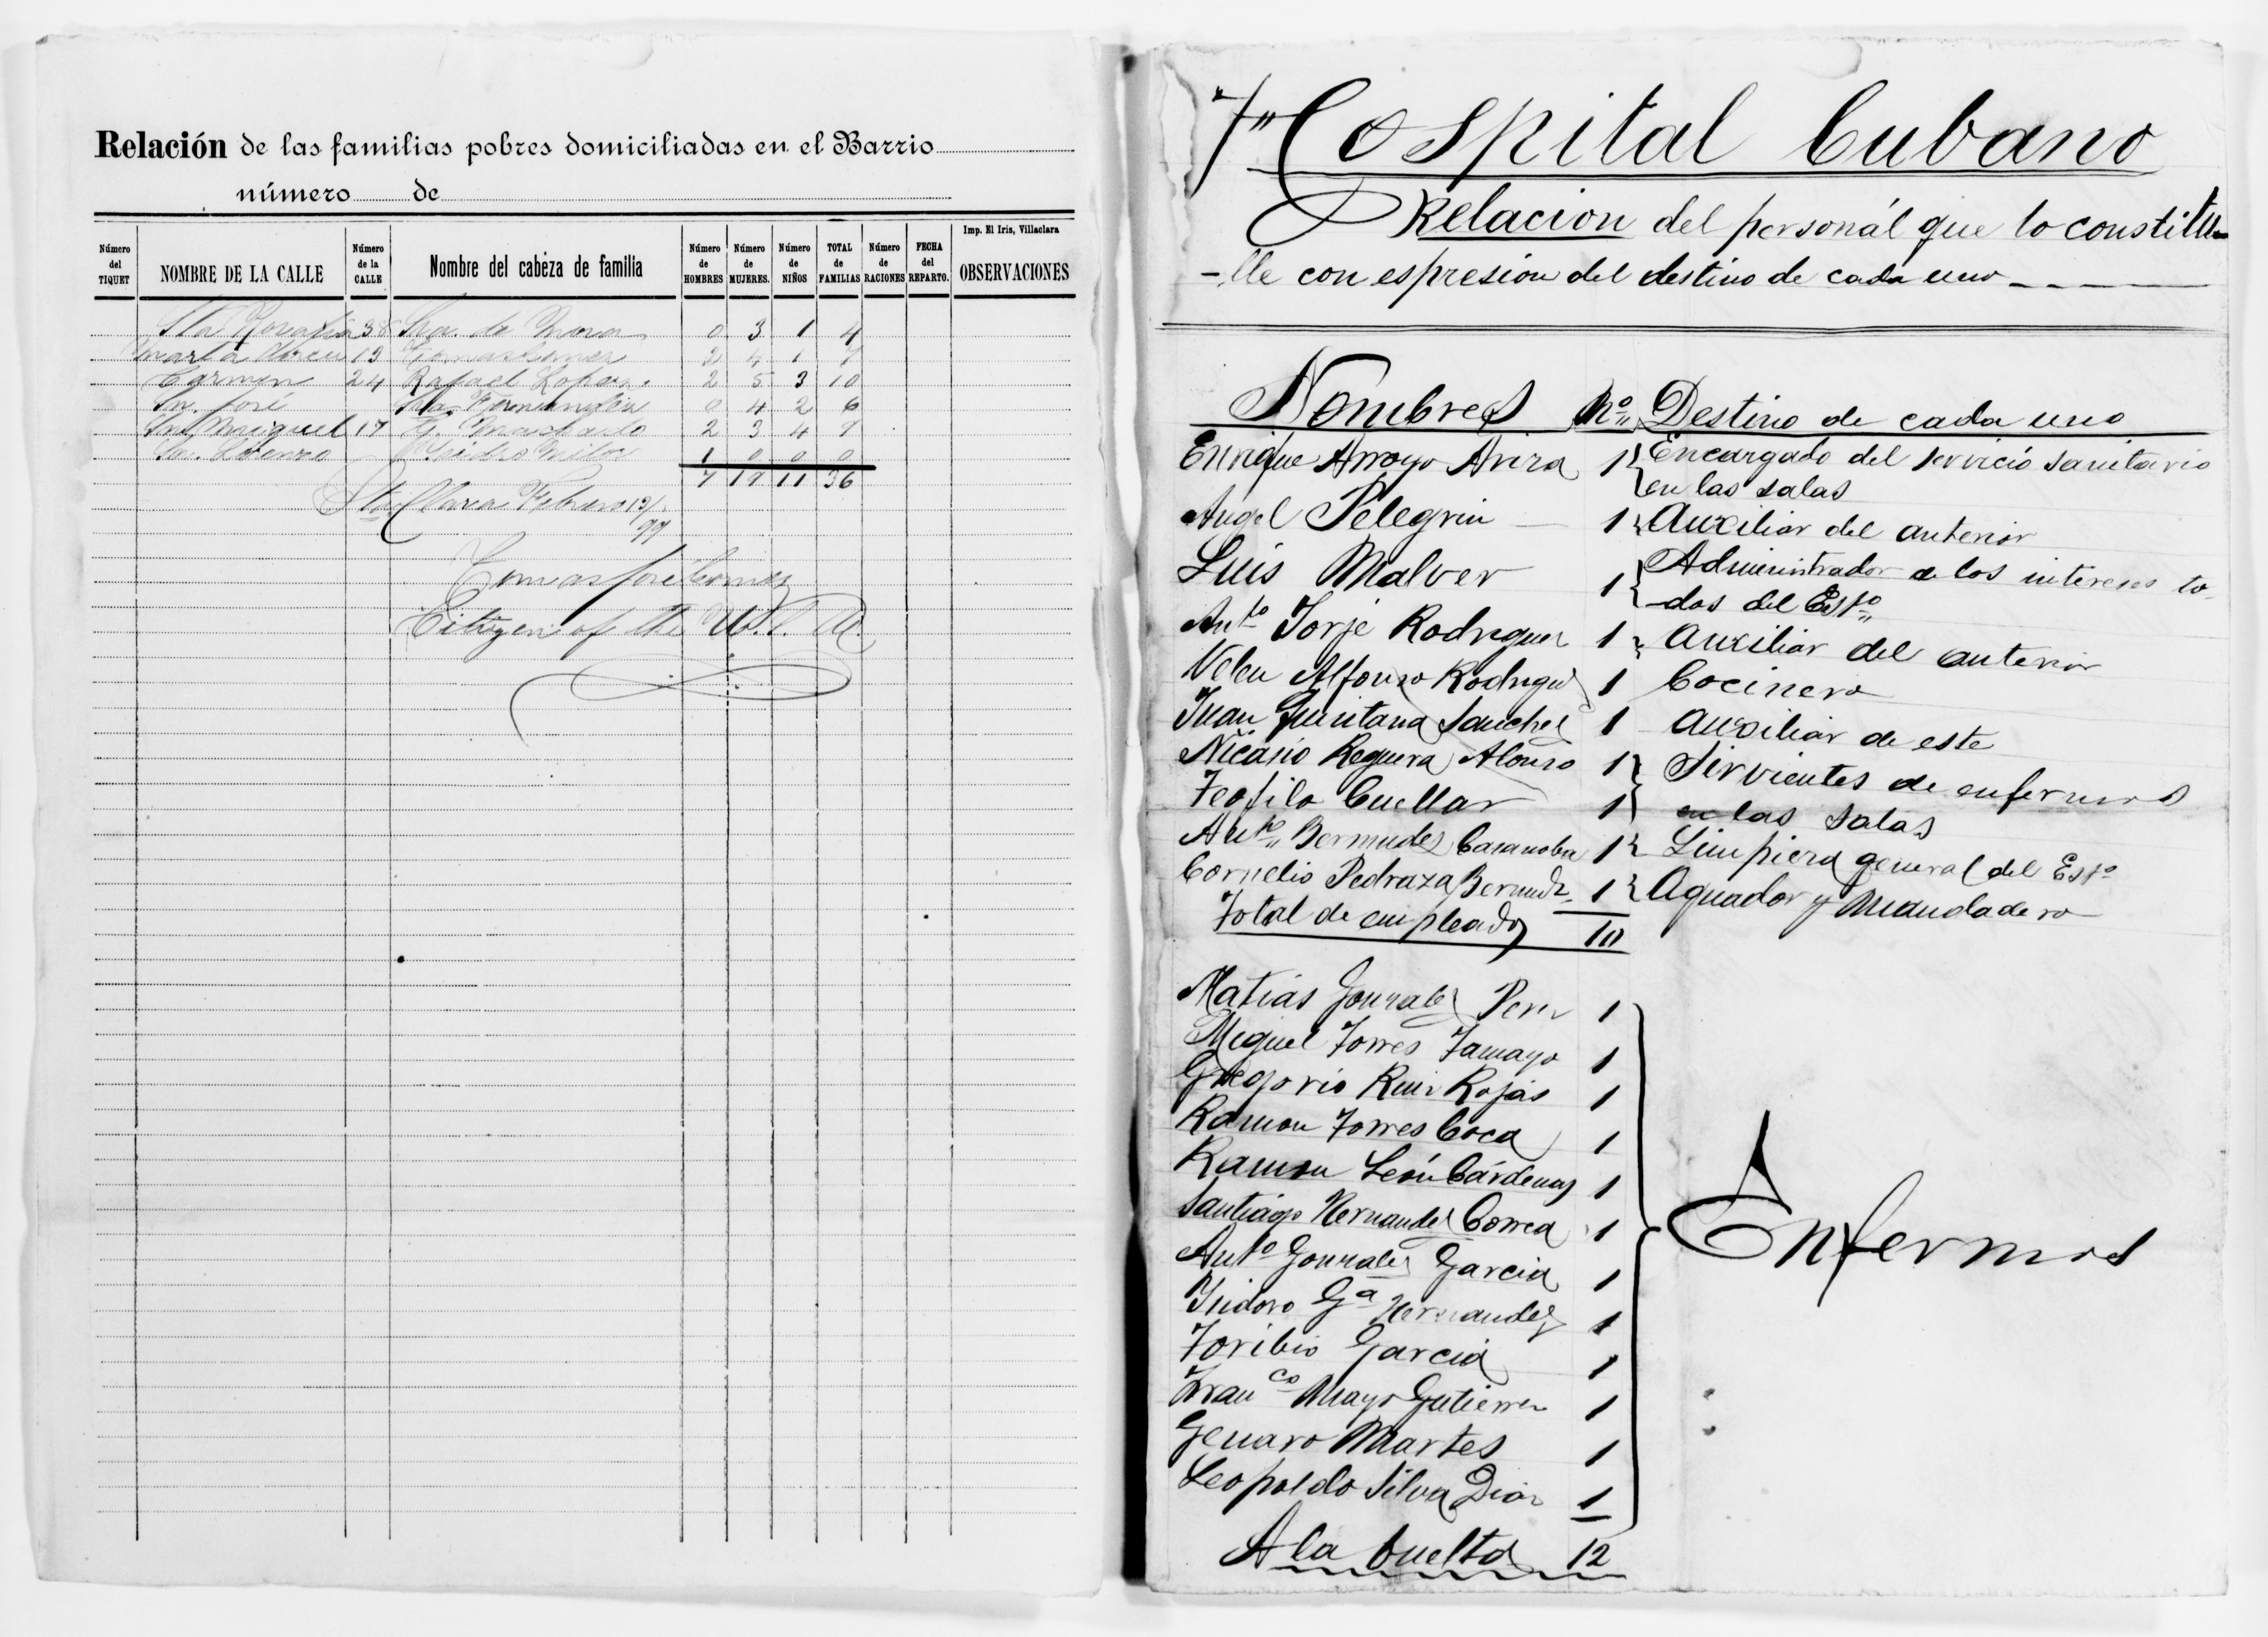 Relación de las familias pobres domiciliadas en el Barrio
número de
Imp. El Iris, Villaclara
Número del TIQUET NOMBRE DE LA CALLE Número de la CALLE Nombre del cabeza de familia Número de HOMBRES Número de MUJERES. Número de NIÑOS TOTAL de FAMILIAS Número de RACIONES FECHA del REPARTO. OBSERVACIONES
Sta Rosalia 38 Sra. de Mora 0 3 1 4
Marta Abreu 19 Tomas Gomez 2 4 1 7
Carmen 24 Rafael Lopez 2 5 3 10
Sn. José Sra. Fernandez 0 4 2 6
Sn. Miguel 17 G. Machado 2 3 4 9
Sn. Lorenzo Isidro 1 0 0 0
7 19 11 36
Sta Clara Febrero 13/
99
Tomas José Gomez
Citizen of the U.S. A.
Hospital Cubano
Relacion del personál que lo constitu
-lle con espresion del destino de cada uno
Nombres No. Destino de cada uno
Enrique Arroyo 1 Encargado del servicio sanitario
en las salas
Angel Pelegrin 1 Auxiliar del anterior
Luis Malver 1 Administrador de los intereses to-
-dos del Esto
Anto Jorje Rodriguez 1 Auxiliar del anterior
Alfonso Rodriguez 1 Cocinero
Juan Quintana Sanchez 1 Auxiliar de este
Nicasio Reguera Alonso 1 Sirvientes de enfermos
Teofilo Cuellar 1 en las salas
Anto Bermudez Casanoba 1 Limpieza general del Esto
Cornelio Pedraza Bermudz 1 Aguador y Mandadero
Total de empleados 10
Matias Gonzalez Perez 1
Miguel Torres Tamayo 1
Gregorio Ruiz Rojas 1
Ramon Torres Coca 1
Ramon León Cárdenas 1
Santiago Hernandez Correa 1
Enfermos
Anto Gonzalez Garcia 1
Isidoro Ga Hernandez 1
Toribio Garcia 1
Franco Mayo Gutierrez 1
Genaro Martes 1
Leopoldo Silva Diaz 1
A la buelta 12